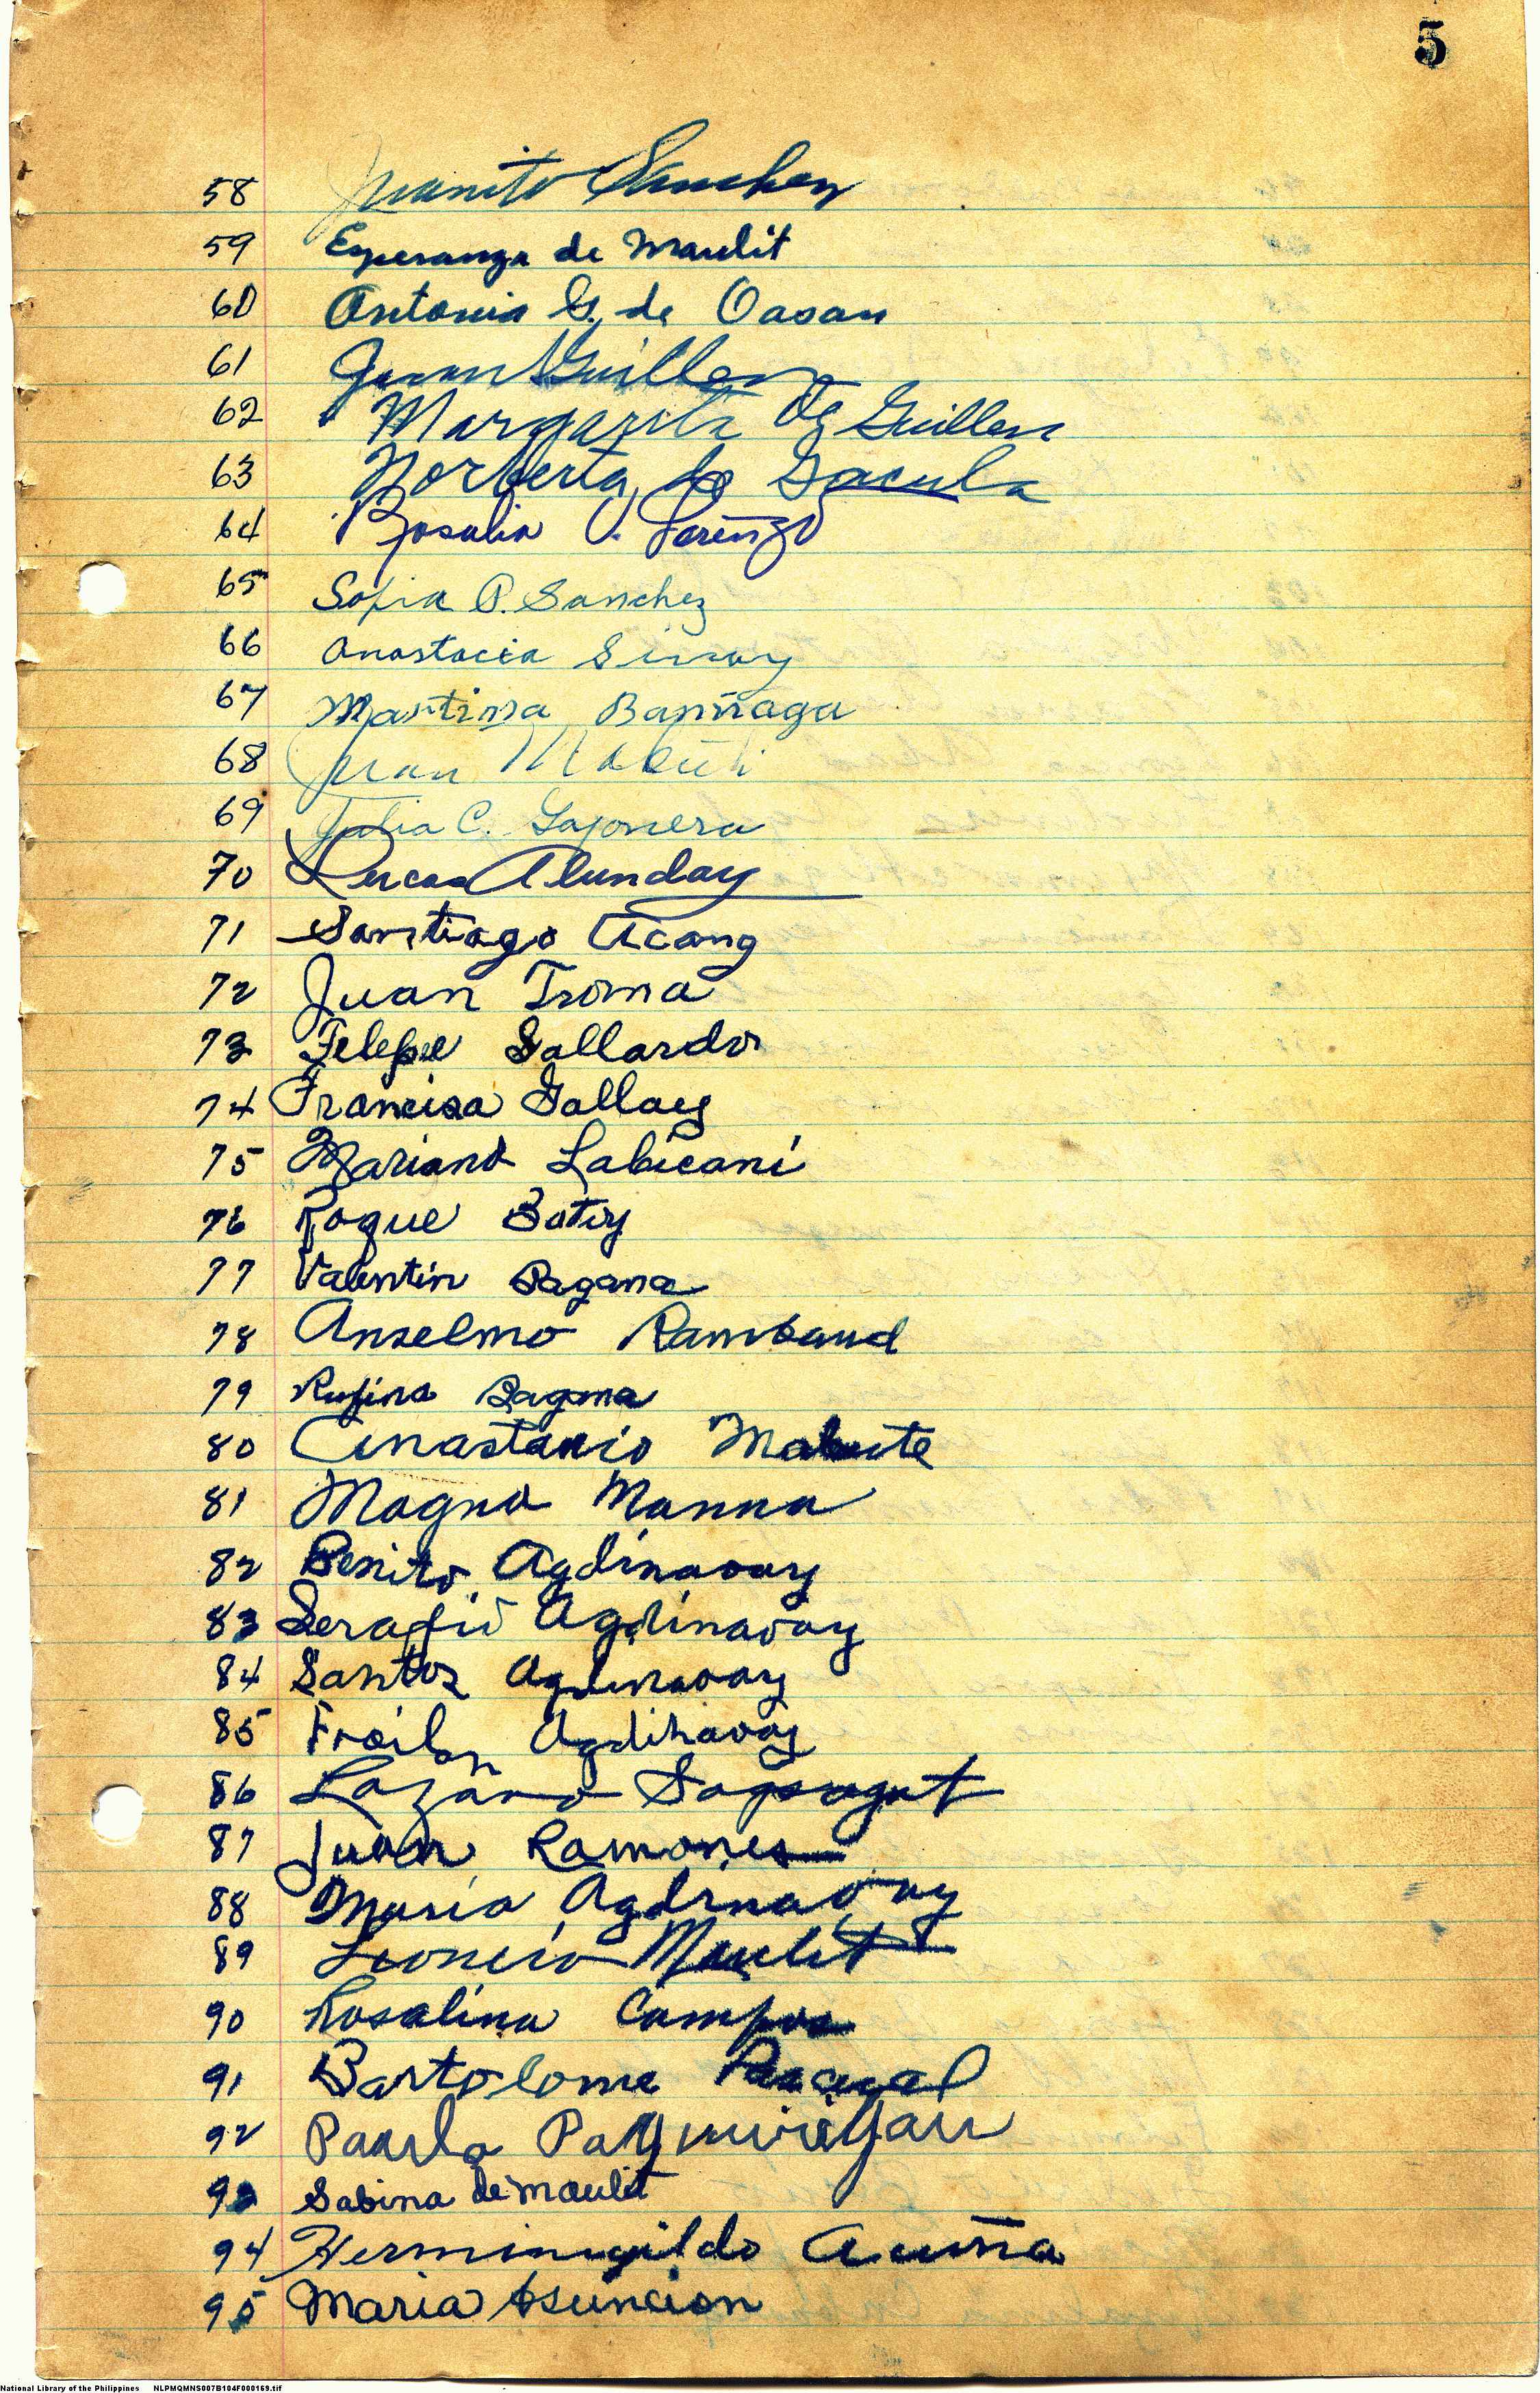 5
58 Juanito Sanchez
59 Esperanza de Maulit
60 Antonia G. de Oasan
61 Juan Guillen
62 Margarita de Guillen
63 Norberta de Gacula
64 Rosalia O. Lorenzo
65 Sofia P. Sanchez
66 Anastacia Sinay
67 Martina Bannaga
68 Juan Mabuti
69 Julia C. Gaponera
70 Lucas Alunday
71 Santiago Acang
72 Juan Troma
73 Felepe Gallardo
74 Francisca Gallaey
75 Mariano Labicani
76 Roque Batiy
77 Valentin Pagana
78 Anselmo Rambaud
79 Rufina Pagana
80 Anastacio Mabute
81 Magno Manna
82 Benito Agdinaoay
83 Serafio Agdinaoay
84 Santos Agdinaoay
85 Froilan Agdinaoay
86 Lazaro Sapsagat
87 Juan Ramones
88 Maria Agdinaoay
89 Leoncio Maulit
90 Rosalina Campos
91 Bartolome Pascual
92 Paula Paguirigan
93 Sabina de Maulit
94 Hermingildo Acuña
95 Maria Asuncion
National Library of the Philippines NLPMQMNS007B104F000169.tif